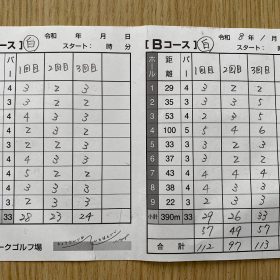 コース】 白
令和 年 月 日
スタート： 時 分
パー 1回目 2回目 3回目
4 3 2 3
4 3 3 2
4 4 3 3
4 2 2 3
3 3 2 2
4 4 3 3
3 3 2 2
4 3 3 3
3 3 3 3
33 28 23 24
ークゴルフ場
【Bコース】 白
令和 8年 1月
スタート：
ホール 距離 パー 1回目 2回目 3回目
1 29 4 3 2 3
2 35 3 3 3 5
3 53 4 3 2 4
4 100 5 5 4 6
5 33 3 2 3 3
6 38 4 4 3 3
7 35 4 3 3 3
8 45 3 3 3 3
9 22 3 3 3 3
小計 390m 33 29 26 33
57 49 57
合計 112 97 113